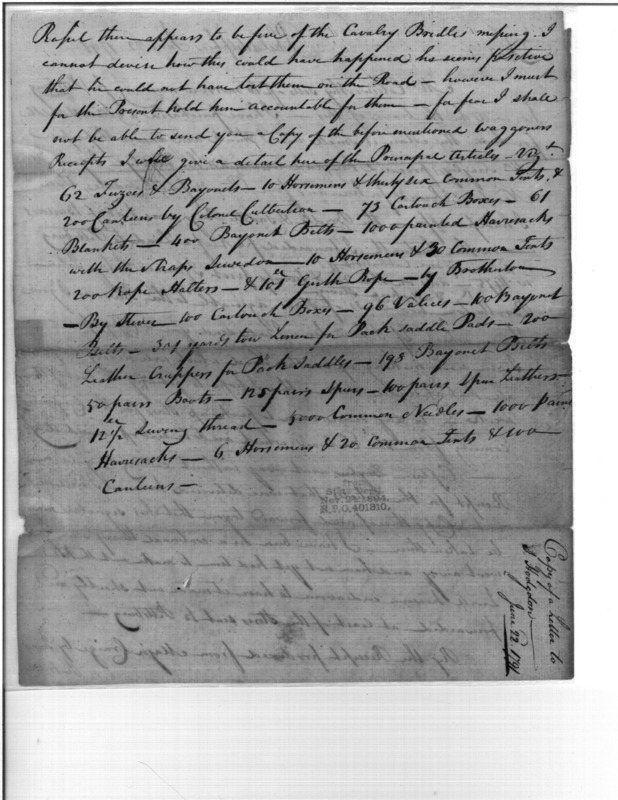 there appears to be five of the Cavalry Bridles missing. I
cannot devise how this could have happened he seems positive
that he could not have lost them on the Road — however I must
for the Present hold him accountable for them — for fear I shall
not be able to send you a Copy of the before mentioned Waggoners
Receipts I will give a detail here of the Principal Articles — Vizt.
62 Fuzees & Bayonets — 10 Horsemens & thirty six common Tents, &
200 Canteens by Colonel Culbertson — 73 Cartouch Boxes — 61
Blankets — 400 Bayonet Belts — 1000 painted Havresacks
with the Straps Sewed on — 10 Horsemens & 30 Common Tents
200 Rope Halters — & Girth Rope — by Brotherton
— By 100 Cartouch Boxes — 96 Valices — 100 Bayonet
Belts — yards tow Linnen for Pack saddle Pads — 200
Leather Cruppers for Pack Saddles — 193 Bayonet Belts
50 pairs Boots — 125 pairs Spurs — 100 pairs Spur Leathers —
12 Sewing thread — 5000 Common Needles — 1000
Havresacks — 6 Horsemens & 20 Common Tents & 100
Canteens —
Nov. 21, 1884,
R.P.O. 401310.
Copy of a Letter to
S Hodgdon
June 22 1791